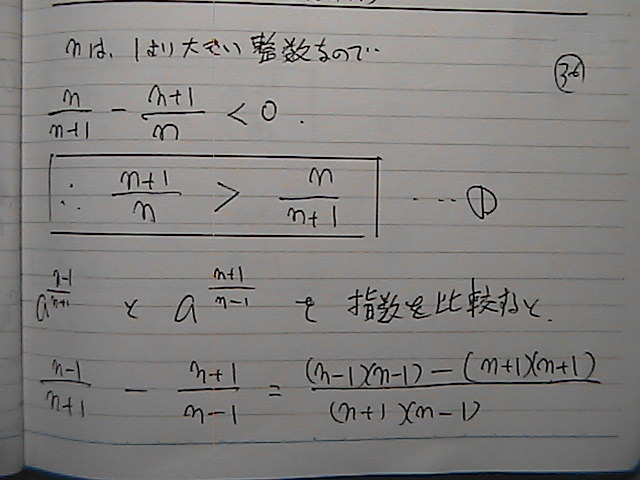 nは、1より大きい整数なので‥
(36)
n/(n+1) - (n+1)/n < 0.
∴ (n+1)/n > n/(n+1) ... ①
a^((n-1)/(n+1)) と a^((n+1)/(n-1)) を 指数を比較すると、
(n-1)/(n+1) - (n+1)/(n-1) = ((n-1)(n-1) - (n+1)(n+1))/((n+1)(n-1))